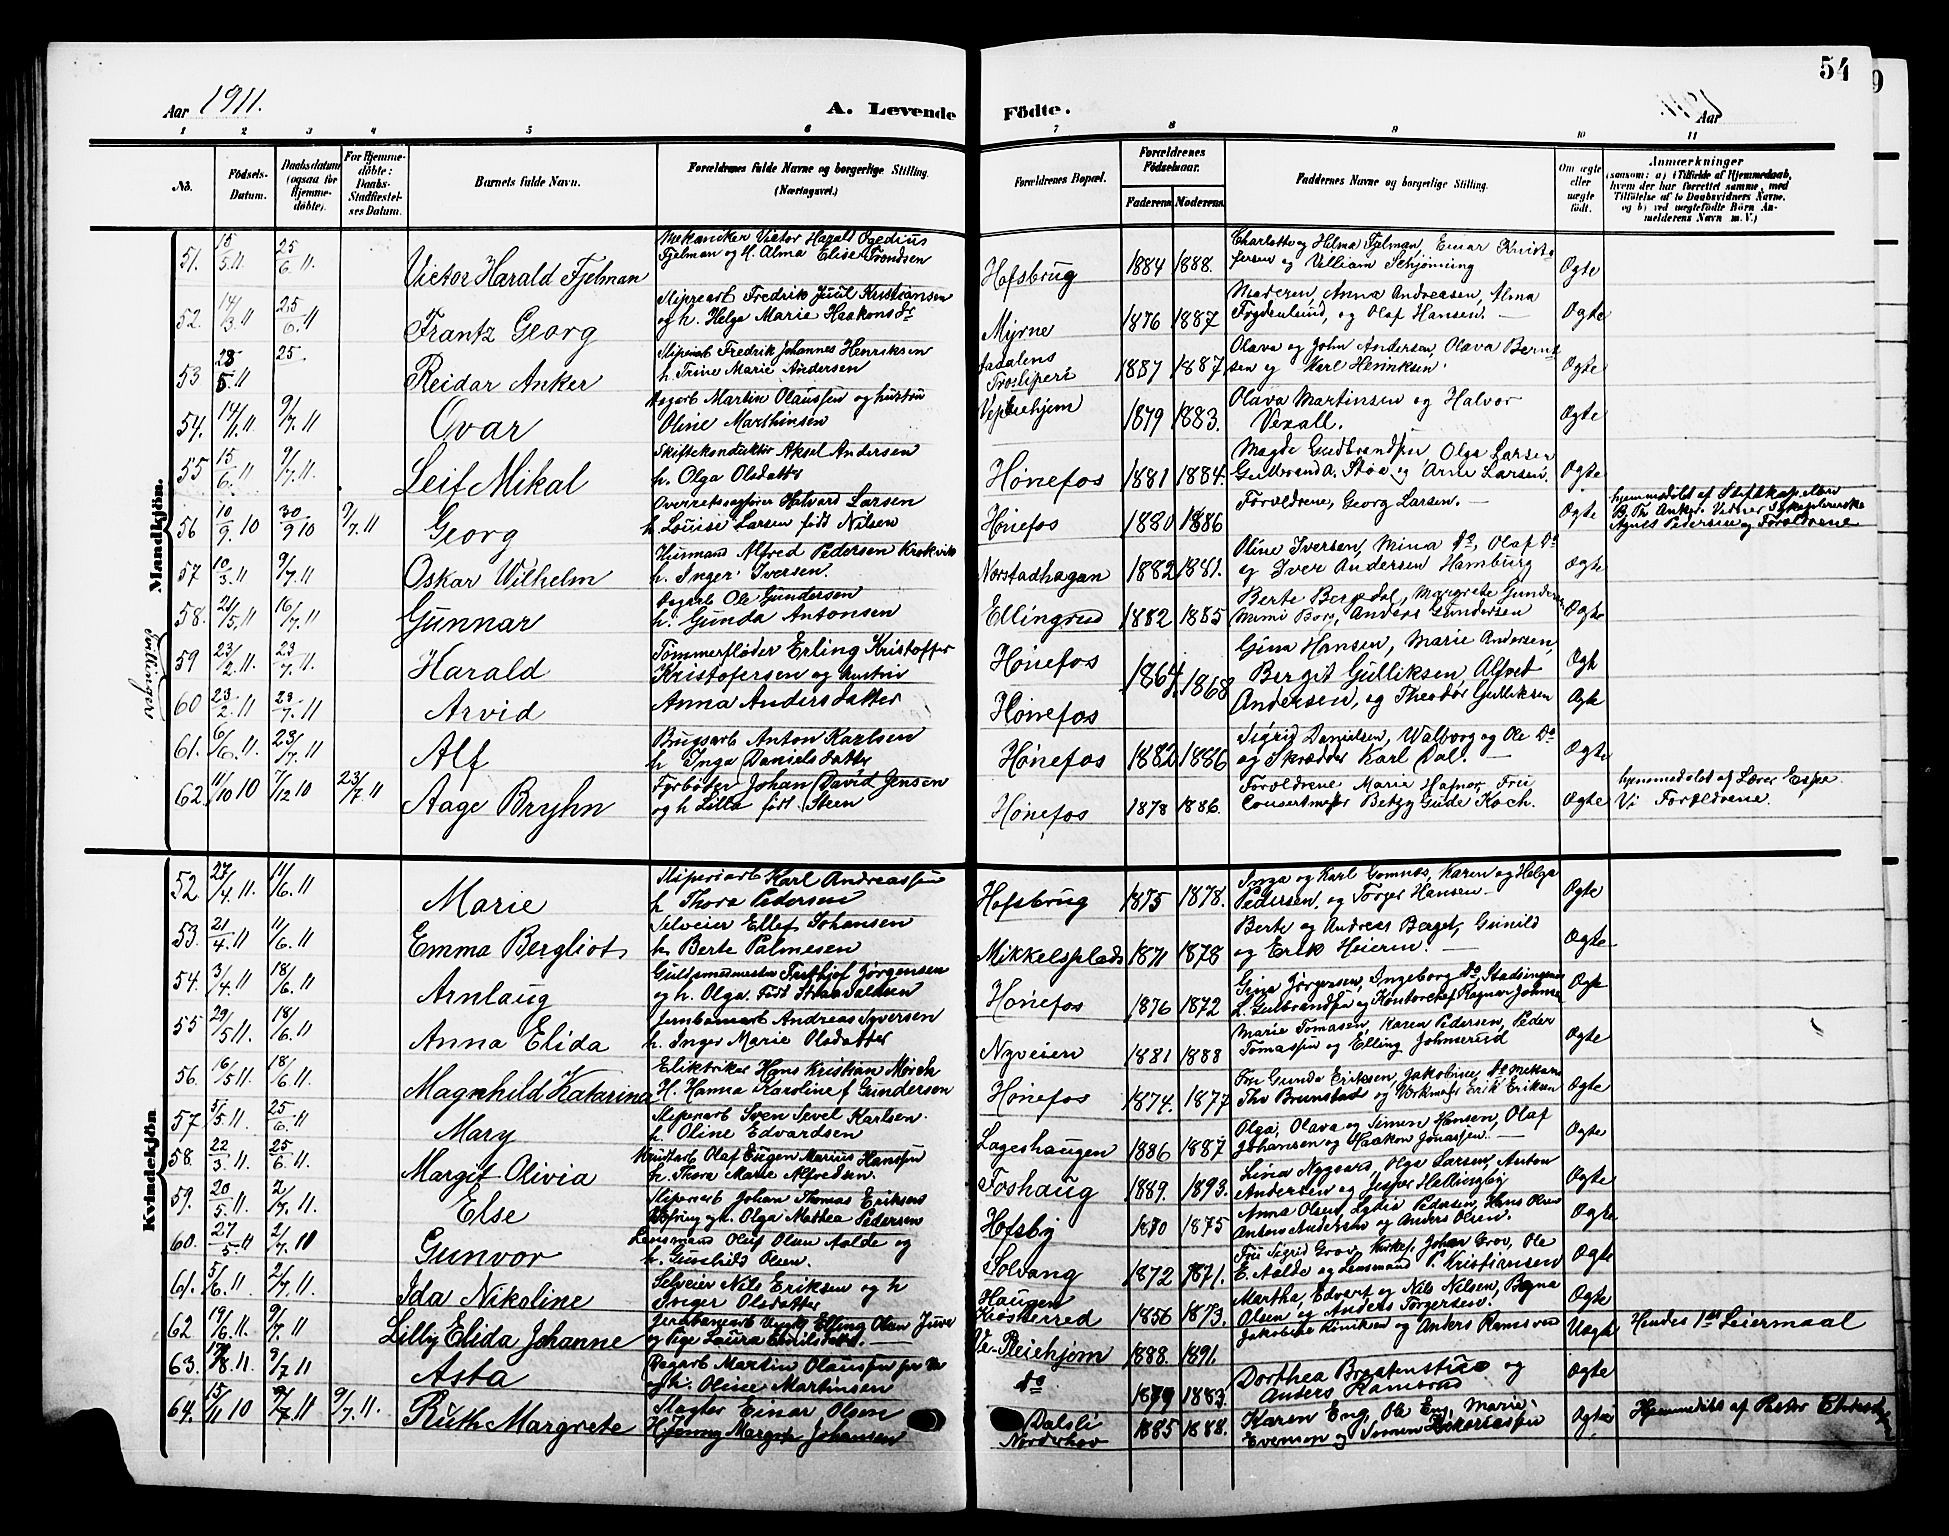 54
Aar 1911.
A. Levende Födte.
Aar
1 2 3 4 5 6 7 8 9 10 11
No.
Födsels-Datum.
Daabsdatum (ogsaa for Hjemme-döbte).
For Hjemme-döbte: Daabs-Stadfæstel-ses Datum.
Barnets fulde Navn.
Forældrenes fulde Navne og borgerlige Stilling. (Næringsvei.)
Forældrenes Bopæl.
Forældrenes Födselsaar.
Faderens Moderens
Faddernes Navne og borgerlige Stilling.
Om ægte eller uægte födt.
Anmærkninger
(saasom: a) i Tilfælde af Hjemmedaab, hvem der har forrettet samme, med Tilföielse af to Daabsvidners Navne, og b) ved uægtefödte Börn An-melderens Navn m. V.)
Mandkjön.
Tvillinger
51. 15/5 11 25/6 11. Victor Harald Fjelman Mekaniker Victor Harald Fjelman og H. Alma Elise Trondsen Hofsbrug 1884 1888. Charlotte og Helma Fjelman, Einar og Villiam Schjønning Ogte
52. 14/3 11 25/6 11 Frantz Georg Sliperarb Fredrik Juul Kristiansen og h. Helga Marie Haakonsdr Myrne 1876 1887 Moderen, Anna Andreasen, Alma Frydenlund, og Olaf Hansen. Ogte
53 28/5 11 25. Reidar Anker Sliperiarb Fredrik Johannes Henriksen h. Trine Marie Andersen 1887 1887 Olava og John Andersen, Olava Bernt sen og Karl Henriksen. Ogte
54. 14/1 11 9/7 11 Ovar Dagarb Martin Olaussen og hustru Oline Marthinsen 1879 1883. Olava Martinsen og Halvor Vexall. Ogte
55 15/6 11 9/7 11. Leif Mikal Skiftekonduktør Aksel Andersen h. Olga Olsdatter Hønefos 1881 1884. Magde Gudbrandsen, Olga Larsen Gudbrand A. Støa og Arne Larsen. Ogte
56 10/9 10 30/9 10 9/7 11 Georg Overretssagfører Halvard Larsen h. Louise Larsen født Nilsen Hønefos 1880 1886 Forældrene, Georg Larsen. Ogte hjemmedøbt af Stiftskapellan B. Th. Anker. Vidner Sykepleierske Agnes Pedersen og Forældrene
57 10/3 11 9/7 11 Oskar Wilhelm Husmand Alfred Pedersen Krokvik h. Inger Iversen. Norstadhagan 1882 1881. Oline Iversen, Mina do, Olaf Do og Iver Andersen Hamburg Ogte
58. 21/5 11 16/7 11. Gunnar Dagarb Ole Gundersen h. Gunda Antonsen Ellingrud 1882 1885 Berte Bergdal, Margrete Gunder Mimi Bors, Anders Gundersen Ogte
59 23/2 11 23/7 11. Harald Tømmerfløder Erling Kristoffer Kristofersen og hustru Hønefos 1864 1868 Gina Hansen, Marie Andersen, Bergit Gulliksen, Alfred Ogte
60 23/2 11 23/7 11 Arvid Anna Andersdatter Hønefos Andersen, og Theodor Gulliksen Ogte
61. 6/6 11. 23/7 11 Alf Brugsarb Anton Karlsen h Inga Danielsdatter Hønefos 1882 1886 Sigrid Danielsen, Walborg og Ole Do og Skrædder Karl Dal. Ogte
62. 11/10 10 7/12 10 23/7 11 Aage Bryhn Fyrbøter Johan David Jensen og h Lilla født Steen Hønefos 1878 1886. Forældrene Marie Hafnor, Fru Consertmester Betzy Gude Koch. Ogte hjemmedøbt af Lærer Espe Vi Forældrene.
Kvindekjön.
52 27/4 11. 11/6 11 Marie Sliperiarb Karl Andreassen h Thora Pedersen Hofsbrug 1875 1878. Inga og Karl Gomnæs, Karen og Helga Pedersen, og Torger Hansen Ogte
53. 21/4 11 11/6 11. Emma Bergliot Selveier Ellef Johansen h Berte Palmesen Mikkelsplads 1871 1878 Berte og Andreas Berget, Gunild og Erik Heieren. Ogte
54. 3/4 11 18/6 11. Arnlaug Guldsmedmester Fritjof Jørgensen og h. Olga født Hønefos 1876 1872 Gina Jørgensen, Ingeborg do, Stadsingeniør L. Gulbrandsen og Kontorchef Ragnar Johnsen Ogte
55 29/5 11 18/6 11. Anna Elida Jernbanearb Andreas Syversen h. Inger Marie Olsdatter Nyveien 1881 1888 Marie Tomasen, Karen Pedersen, Peder Tomassen og Elling Johnsrud Ogte
56. 16/5 11 18/6 11. Magnhild Katarina Elektriker Hans Kristian Mørch H. Hanna Karoline f Gundersen Hønefos 1874. 1877 Fru Gunda Eriksen, Jakobine do Mekan Thv Brunstad og Værkmester Erik Eriksen Ogte
57 5/5 11. 25/6 11 Mary Sliperiarb Sven Sevel Karlsen. h. Oline Edvardsen Lageshaugen 1886 1887 Olga, Olava og Simen Hansen, Olaf Johansen og Haakon Jonassen. Ogte
58. 22/3 11. 25/6 11. Margit Olivia Olaf Eugen Marius Hanssen h. Thora Marie Alfredsen. Foshaug 1889. 1893. Livia Nygaard, Olga Larsen, Anton Andersen og Jesper Hellingby Ogte
59. 20/5 11. 2/7 11. Else Sliperiarb Johan Thomas Eriksens og h. Olga Mathea Pedersen Hofsby 1870 1875 Anna Olsen, Lydia Pedersen, Hans Olsen Anton Andersen og Anders Olsen. Ogte
60. 27/5 11 2/7 11 Gunvor Lensmand Oluf Olsen Aalde og h. Gunhild Olsen. Solvang 1872 1871. Fru Sigrid Grov, Kirkes. Johan Grov, Ole E. Aalde og Lensmand P. Kristiansen Ogte
61. 5/6 11. 2/7 11. Ida Nikoline Selveier Nils Eriksen og h Inger Olsdatter Haugen 1856 1873. Martha, Edvart og Nils Nilsen, Olsen og Anders Torgersen. Ogte
62 19/6 11. 9/7 11 Lilly Elida Johanne Jernbanearb Ungk Elling Olsen Juve og Pige Laura 1888. 1891. og Anders Ramsrud Uægt Hendes 1ste Leiermaal
63. 11. 9/7 11 Asta Dagarb Martin Olaussen og h. Oline Martinsen do 1879 1883 Dorthea Braatenstua og Anders Ramsrud Ogte
64. 15/11 10 9/7 11 9/7 11. Ruth Margrete Slagter Einar Olsen H Jenny Margit Johansen Dalsli Norderhov 1885 1888. Karen Eng, Ole Eng, Marie Evensen og Simen Ogte Hjemmedøbt af Pastor